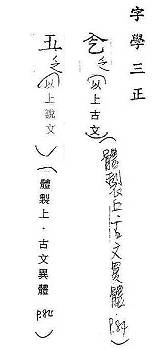 字學三正
乏（以上古文）（體製上．古文異體．P.84）
乏（以上說文）（體製上．古文異體 P.84）